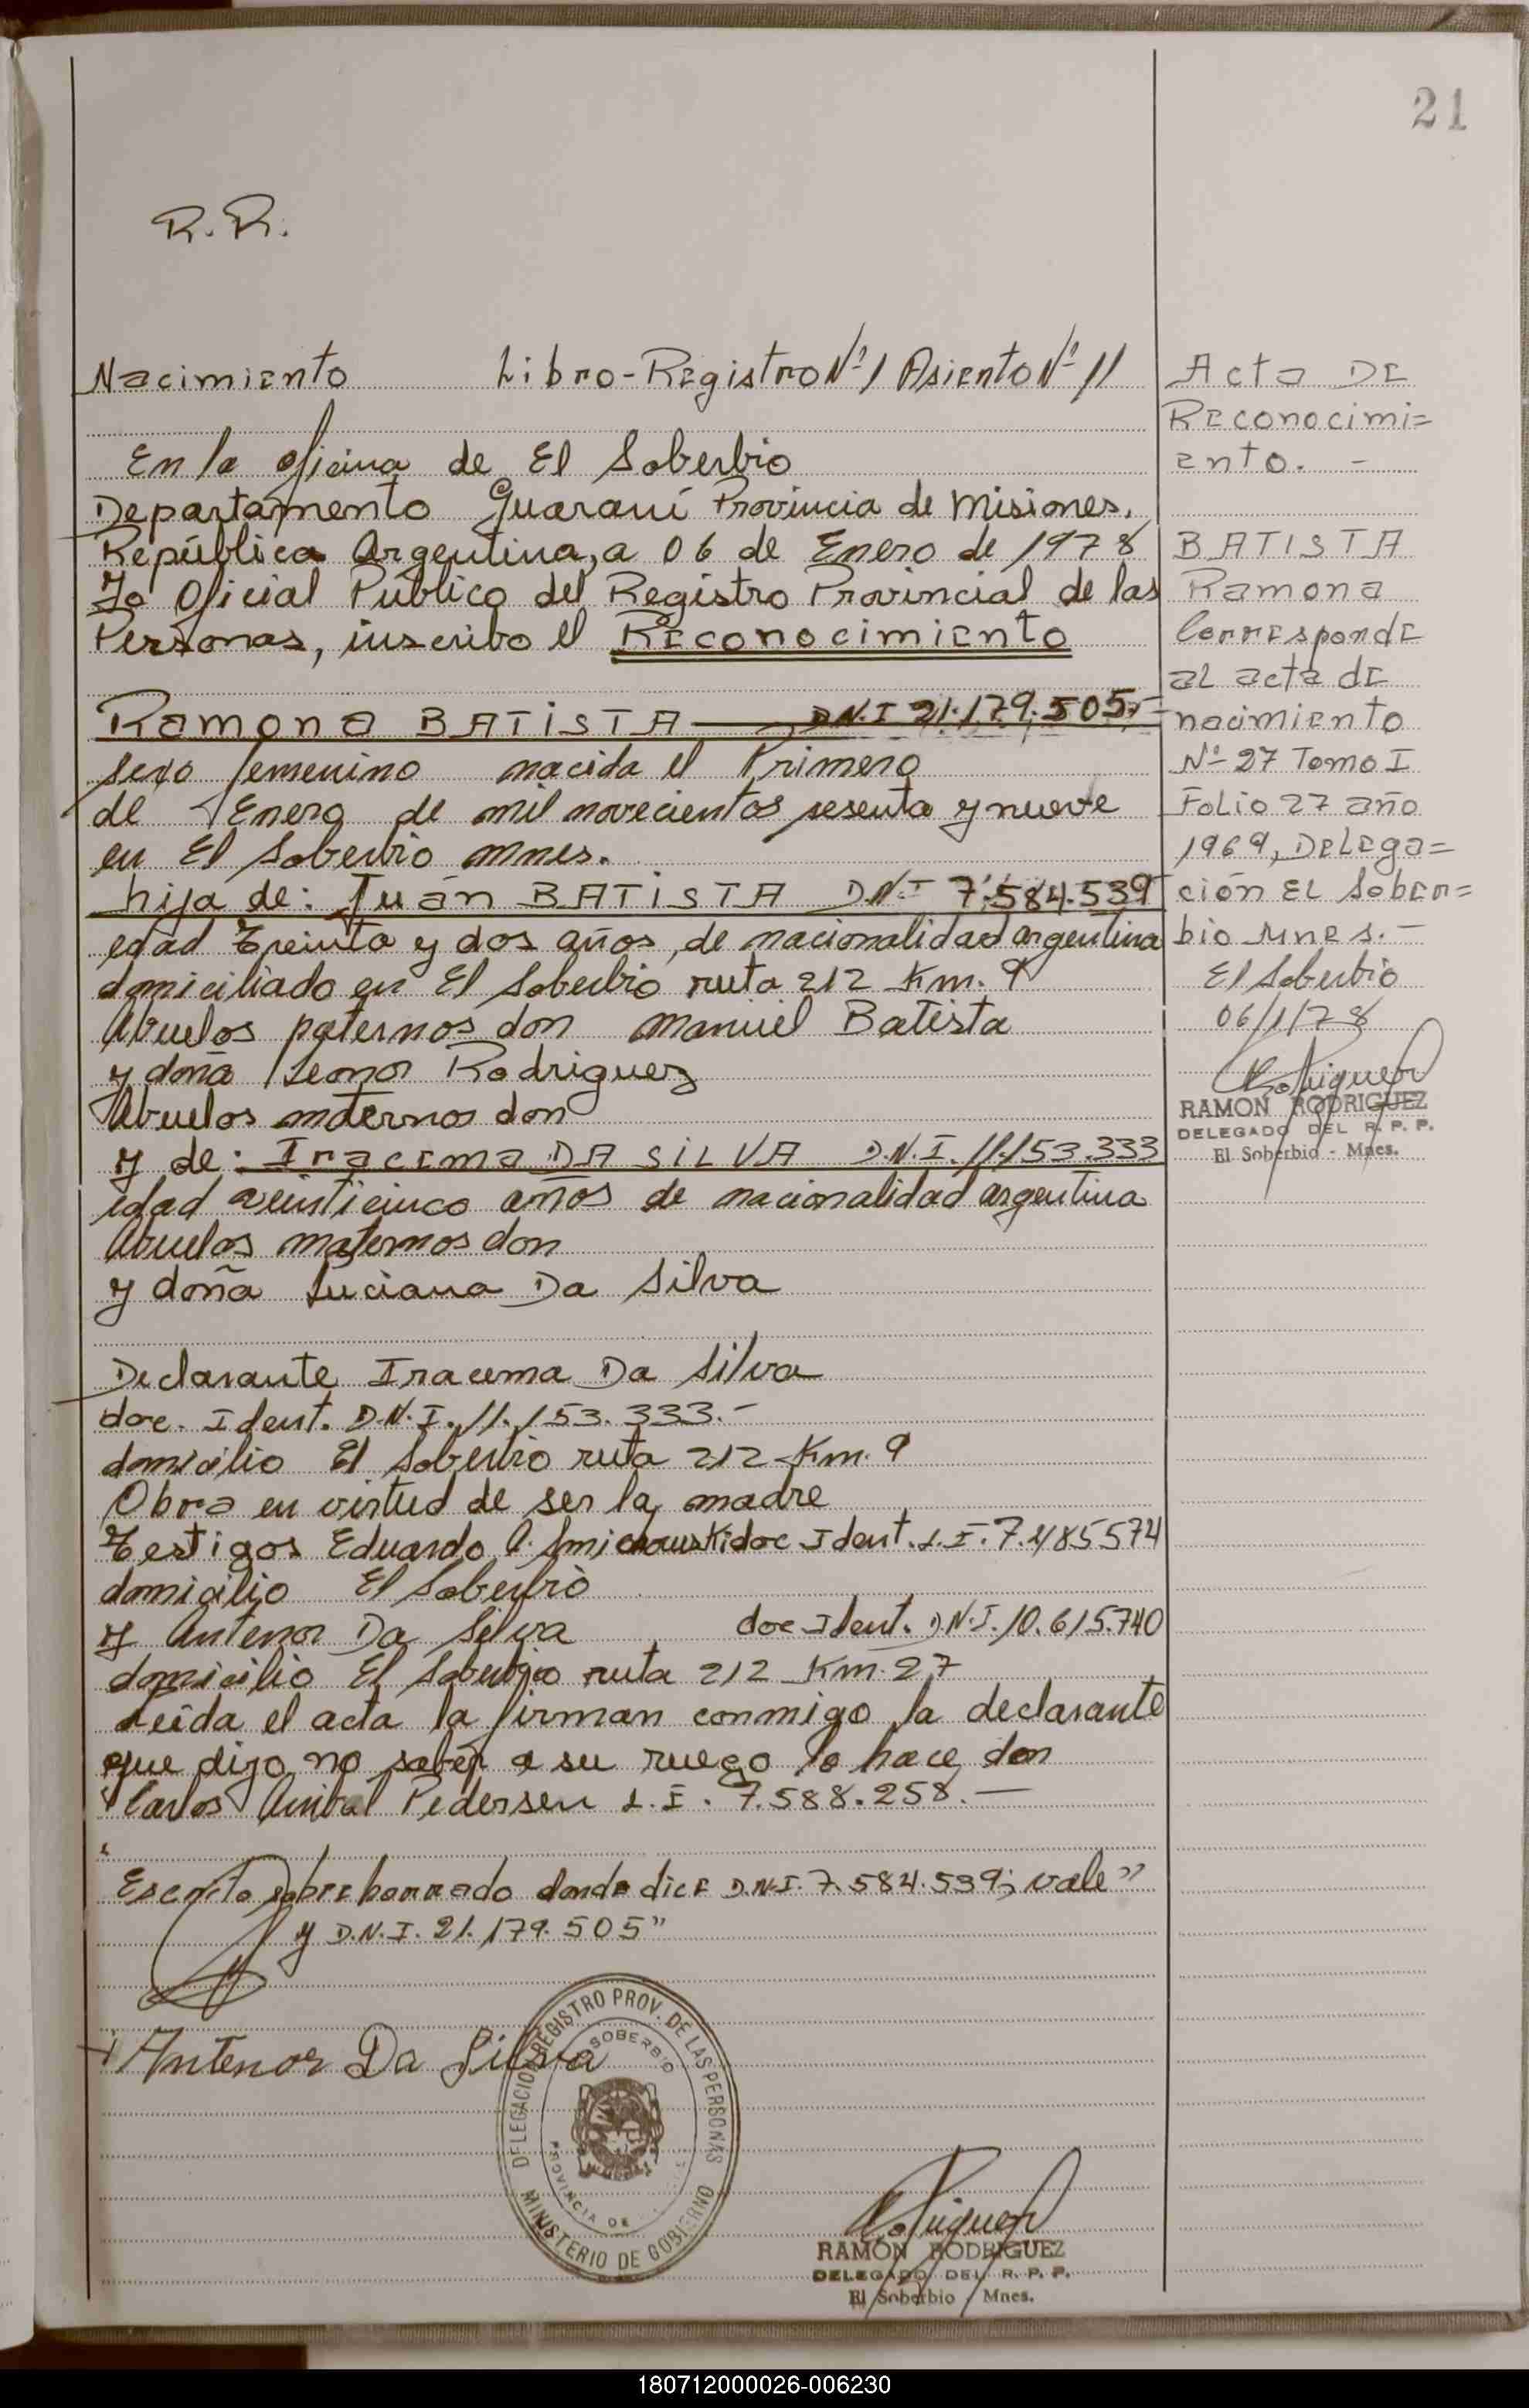 21
R.R.
Nacimiento Libro-Registro Nº 1 Asiento Nº 11
En la oficina de El Soberbio
Departamento Guaraní Provincia de Misiones,
República Argentina, a 06 de Enero de 1978
Yo Oficial Público del Registro Provincial de las
Personas, inscribo el Reconocimiento
Ramona BATISTA D.N.I 21.179.505.-
sexo femenino nacida el Primero
de Enero de mil novecientos sesenta y nueve
en El Soberbio Mnes.
hija de: Juán BATISTA D.N.I 7.584.539
edad treinta y dos años, de nacionalidad argentina
domiciliado en El Soberbio ruta 212 Km. 9
Abuelos paternos don Manuel Batista
y doña Leonor Rodriguez
Abuelos maternos don
y de: Iracema DA SILVA D.N.I. 11.153.333
edad veinticinco años de nacionalidad argentina
Abuelos maternos don
y doña Luciana Da Silva
Declarante Iracema Da Silva
doc. Ident. D.N.I. 11.153.333.-
domicilio El Soberbio ruta 212 Km. 9
Obra en virtud de ser la madre
Testigos Eduardo A. doc Ident. L.I. 7.485574
domicilio El Soberbio
y Antenor Da Silva doc Ident. D.N.I. 10.615.740
domicilio El Soberbio ruta 212 Km. 27
Leída el acta la firman conmigo la declarante
que dijo no saber a su ruego lo hace don
Carlos Anibal Pedersen L.I. 7.588.258.—
"Escrito sobre borrado donde dice D.N.I. 7.584.539; vale"
y D.N.I. 21.179.505"
Antenor Da Silva
DELEGACION REGISTRO PROV. DE LAS PERSONAS
SOBERBIO
PROVINCIA DE
MINISTERIO DE GOBIERNO
Rodriguez
RAMON RODRIGUEZ
DELEGADO DEL R. P. P.
El Soberbio - Mnes.
Acta DE
Reconocimi=
ento. -
BATISTA
Ramona
Corresponde
al acta de
nacimiento
Nº 27 Tomo I
Folio 27 año
1969, Delega=
ción El Sober=
bio Mnes.-
El Soberbio
06/1/78
Rodriguez
RAMON RODRIGUEZ
DELEGADO DEL R. P. P.
El Soberbio - Mnes.
180712000026-006230